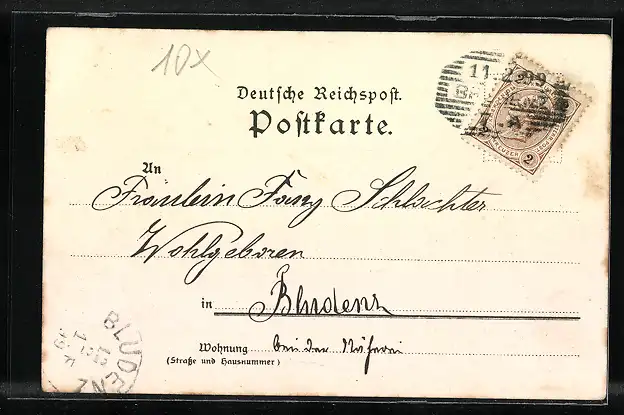 10x
11.2.99
2
Deutsche Reichspost.
Postkarte.
An
Fräulein Fany Schlachter
Wohlgeboren
in Bludenz
Wohnung bei der Näherei
(Straße und Hausnummer)
BLUDENZ